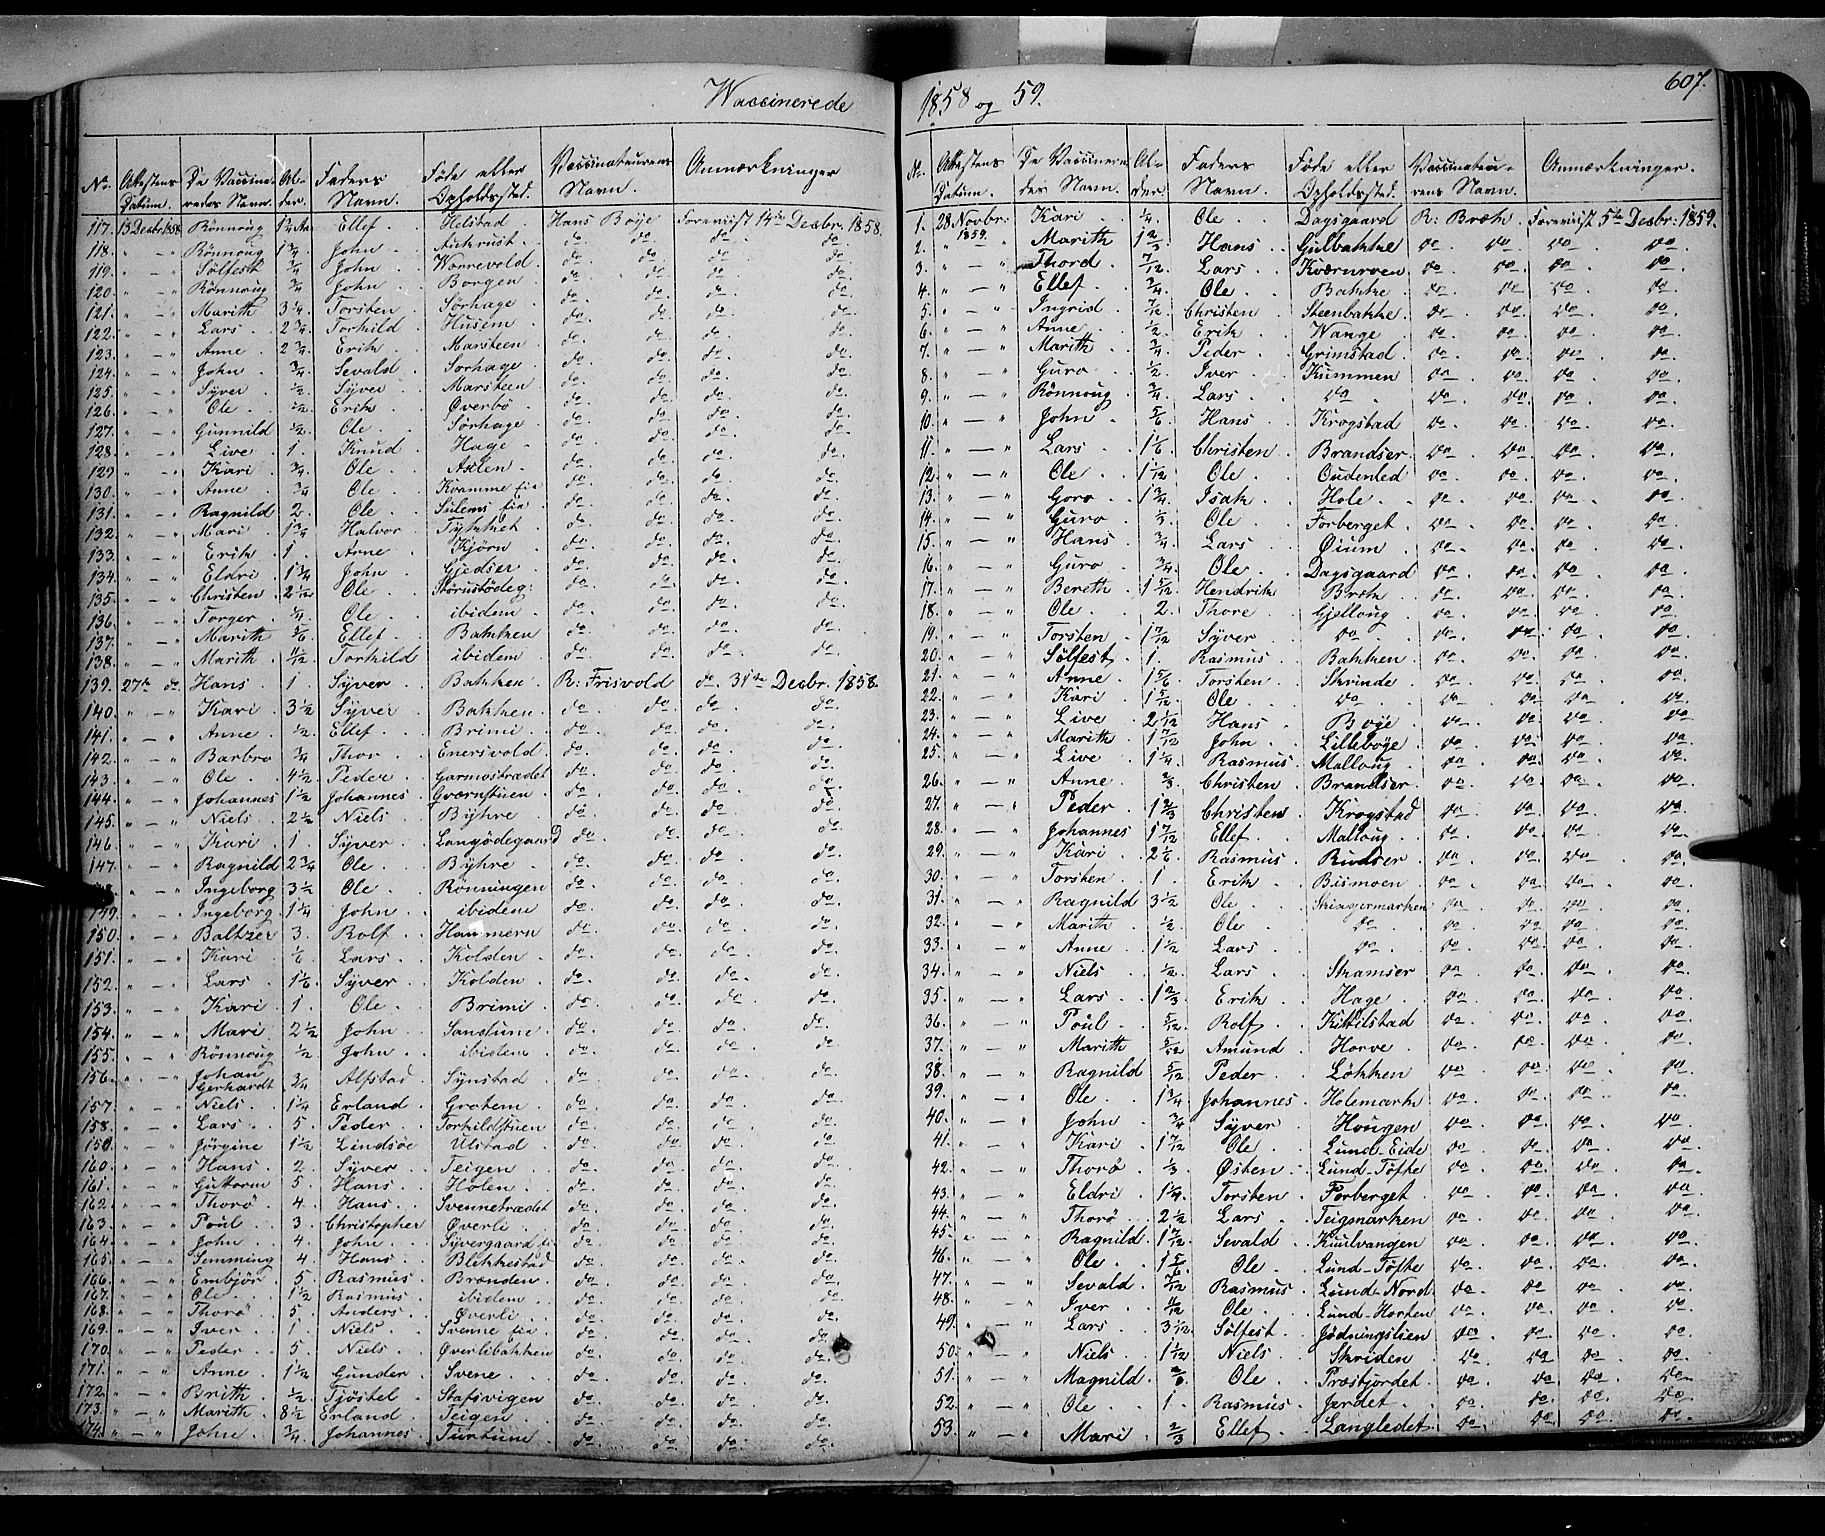 Waccinerede
No. Attestens Datum. De Vaccineredes Navn. Alder. Faders Navn. Føde eller Opholdssted. Vaccinateurens Navn. Anmærkninger
117. 13 Decbr 1858 Rönnoug Ellef Helstad Hans Boye Foreviist 14de Decbr. 1858.
118. " — " Rönnoug 1 3/4 John Aukrust do do do do
119. " — " Sölfest 3/4 John Wonrevold do. do. do. do.
120. " — " Rönnoug 3/4 John Borgen do. do. do. do.
121. " — " Marith 3 1/4 Torsten Sörhage do. do. do. do.
122. " — " Lars 2 3/4 Torkild Husem do. do. do. do.
123. " — " Anne 2 3/4 Erik Marsteen do. do. do. do.
124. " — " John 3/4 Sevald Sorhage do. do. do. do.
125. " — " Syver 1/2 Syver Marsteen do. do. do. do.
126. " — " Ole 1/2 Erik Överbö do. do. do. do.
127. " — " Gunnild 1/2 Ole Sörhage do. do. do. do.
128. " — " Live 1. Knud Hage do. do. do. do.
129 " — " Kari 3/4 Ole Aslen do. do. do. do.
130. " — " Anne 3/4 Ole Kvamme eie do. do. do. do.
131. " — " Ragnild 2. Ole Sulems eie do. do. do. do.
132. " — " Mari 1 3/4 Halvor do. do. do. do.
133. " — " Erik 1. Arne Kjörn do. do. do. do.
134. " — " Eldri 1 3/4 John Gjedser do. do. do. do.
135. " — " Christen 2 1/12 Ole do. do. do. do.
136. " — " Torger 3/4 Ole ibidem do. do. do. do.
137. " — " Marith 5/6 Ellef Bakken do. do. do. do.
138. " — " Marith 11/12 Torkild ibidem do. do. do. do.
139. 27de do. Hans 1 Syver Bakken R: Frisvold do. 31te Decbr. 1858.
140. " — " Kari 3 1/2 Syver Bakken do. do. do. do.
141. " — " Anne 1/2 Ellef Brimi do. do. do. do.
142. " — " Barbro 3/4 Thor Enersvold do. do. do. do.
143. " — " Ole 4 1/2 Peder Garmostrædet do. do. do. do.
144. " — " Johannes 1 1/2 Johannes Gværnstuen do. do. do. do.
145. " — " Niels 2 1/2 Niels Byhre do. do. do. do.
146. " — " Kari 1. Syver Langödegaard do. do. do. do.
147. " — " Ragnild 2 3/4 Ole Byhre do. do. do. do.
" — " Ingeborg 3 1/2 Ole Rönningen do. do. do. do.
149. " — " Ingeborg 1 1/4 John ibidem do. do. do. do.
150. " — " Baltzer 3. Rolf Hammern do. do. do. do.
151. " — " Kari 1/6 Lars Kolden do. do. do. do.
152. " — " Lars 1 1/6 Syver Kolden do. do. do. do.
153. " — " Kari 1. Ole Brimi do. do. do. do.
154. " — " Mari 2 1/2 John Sandune do. do. do. do.
155. " — " Rönnoug 1/2 John ibidem do. do. do. do.
156. " — " Johan Gerhardt 3/4 Alfstad Synstad do. do. do. do.
157. " — " Niels 1 1/4 Erland Grotem do. do. do. do.
158. " — " Lars 5 Peder Torkildstuen do. do. do. do.
159. " — " Jörgine 1 1/2 Lindsöe Ulstad do. do. do. do.
160. " — " Hans 2. Syver Teigen do. do. do. do.
161. " — " Guttorm 5. Hans Holen do. do. do. do.
162. " — " Thorö 4. Hans Svennetrædet do. do. do. do.
163. " — " Poul 3. Christopher Överli do. do. do. do.
164. " — " John 4. John Syvergaard eie do. do. do. do.
165. " — " Semming 4 Hans Blekkestad do. do. do. do.
166. " — " Embjör 5. Rasmus Brænden do. do. do. do.
167. " — " Ole 1 1/2 Rasmus ibidem do. do. do. do.
168. " — " Thorö 5. Anders Överli do. do. do. do.
169. " — " Iver 1. Niels Svenne eie do. do. do. do.
170. " — " Peder 5. Niels Överlibakken do. do. do. do.
171. " — " Anne 1 1/2 Gunder Svene do. do. do. do.
172. " — " Brith 1/2 Tjöstel Stafsvigen do. do. do. do.
173. " — " Marith 8 1/2 Erland Teigen do. do. do. do.
174. " — " John 3/4 Johannes Turtune do. do. do. do.
1858 og 59.
607.
No. Attestens Datum. De Vaccineredes Navn. Alder. Faders Navn. Føde eller Opholdssted. Vaccinateurens Navn. Anmærkninger.
1. 28 Novbr: 1859. Kari 1/4. Ole Dagsgaard R: Bræk Foreviist 5te Decbr: 1859.
2. " Marith 1 2/3 Hans Gulbakke do do. do do.
3. " — " Thord 7/12 Lars Kværnroen do do. do do.
4. " — " Ellef 3/4 Ole Bakke do do. do do.
5. " — " Ingrid 7/12 Christen Steenbakke do do. do do.
6. " — " Anne 1/2 Erik Wange do do. do do.
7. " — " Marith 3/4 Peder Grimstad do do. do do.
8. " — " Guro 1/2 Iver Kummen do do. do do.
9. " — " Rönnoug 3/4 Lars do do do. do do.
10. " — " John 5/6 Hans Krogstad do do. do do.
11. " — " Lars 1 1/6 Christen Brandser do do. do do.
12. " — " Ole 1 1/12 Ole Oudenled do do. do do.
13. " — " Goro 1 3/4 Isak Hole do do. do do.
14. " — " Guro 1/3 Ole Forberget do do. do do.
15. " — " Hans 3/4 Lars Öium do do. do do.
16. " — " Guro 3/4 Ole Dagsgaard do do. do do.
17. " — " Bereth 1 5/12 Hendrik Bræk do do. do do.
18. " — " Ole 2. Thore Gjelloug do do. do do.
19. " — " Torsten 1 7/12 Syver do do do. do do.
20. " — " Sölfest 1. Rasmus Bakken do do. do do.
21. " — " Anne 1 5/6 Torsten Skrinde do do. do do.
22. " — " Kari 1 5/12 Ole do do do. do do.
23. " — " Live 2 1/12 Hans Boye do do. do do.
24. " — " Marith 1 7/12 John Lilleböye do do. do do.
25. " — " Live 1 1/4 Rasmus Malloug do do. do do.
26. " — " Anne 2/3 Christen Brandser do do. do do.
27. " — " Peder 1 2/3 Christen Krogstad do do. do do.
28. " — " Johannes 1 7/12 Ellef Malloug do do. do do.
29. " — " Kari 2 1/6 Rasmus Rudser do do. do do.
30. " — " Torsten 1 Erik Bismoen do do. do do.
31. " — " Ragnild 3 1/2 Ole do do. do do.
32. " — " Marith 1/2 Ole do do do. do do.
33. " — " Anne 1 1/2 Lars do do do. do do.
34. " — " Niels 1/2 Lars Skamser do do. do do.
35. " — " Lars 1 2/3 Erik Hage do do. do do.
36. " — " Poul 5/12 Rolf Kittilstad do do. do do.
37. " — " Marith 5/12 Amund Horve do do. do do.
38. " — " Ragnild 5/12 Peder Lökken do do. do do.
39. " — " Ole 1 3/4 Johannes Holemark do do. do do.
40. " — " John 3/4 Syver Hougen do do. do do.
41. " — " Kari 1 7/12 Ole Lund-Eide do do. do do.
42. " — " Thorö 2/3 Østen Lund-Töfte do do. do do.
43. " — " Eldri 1 1/4 Torsten Forberget do do. do do.
44. " — " Thorö 2 1/2 Lars Teigsmarken do do. do do.
45. " — " Ragnild 1 7/12 Sevald Kuulvangen do do. do do.
46. " — " Ole 1 5/6 Ole Lund-Töfte do do. do do.
47. " — " Sevald 7/12 Rasmus Lund-Nord do do. do do.
48. " — " Iver 5/12 Ole Lund-Horten do do. do do.
49. " — " Lars 3 1/12 Sölfest Jödningslien do do. do do.
50. " — " Niels 1 1/12 Niels Skriden do do. do do.
51. " — " Magnild Ole Prestjordet do do. do do.
52. " — " Ole 1 Rasmus Jordet do do. do do.
53. " — " Mari 2/3 Ellef Langledet do do. do do.